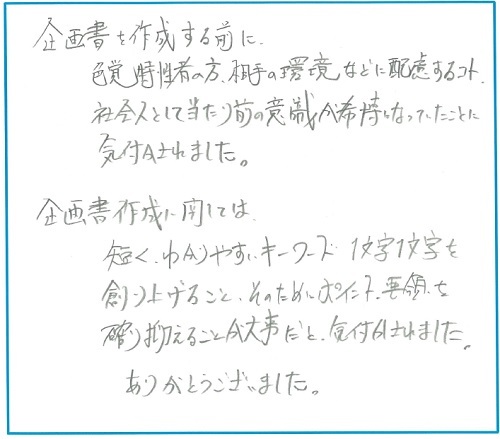 企画書を作成する前に、
色覚特性者の方、相手の環境などに配慮するコト、
社会人として当たり前の意識が希持になっていたことに
気付かされました。
企画書作成に関しては、
短く、わかりやすいキーワード 1文字1文字を
創り上げること、そのためにポイント、要領を
確り抑えることが大事だと、気付かされました。
ありがとうございました。